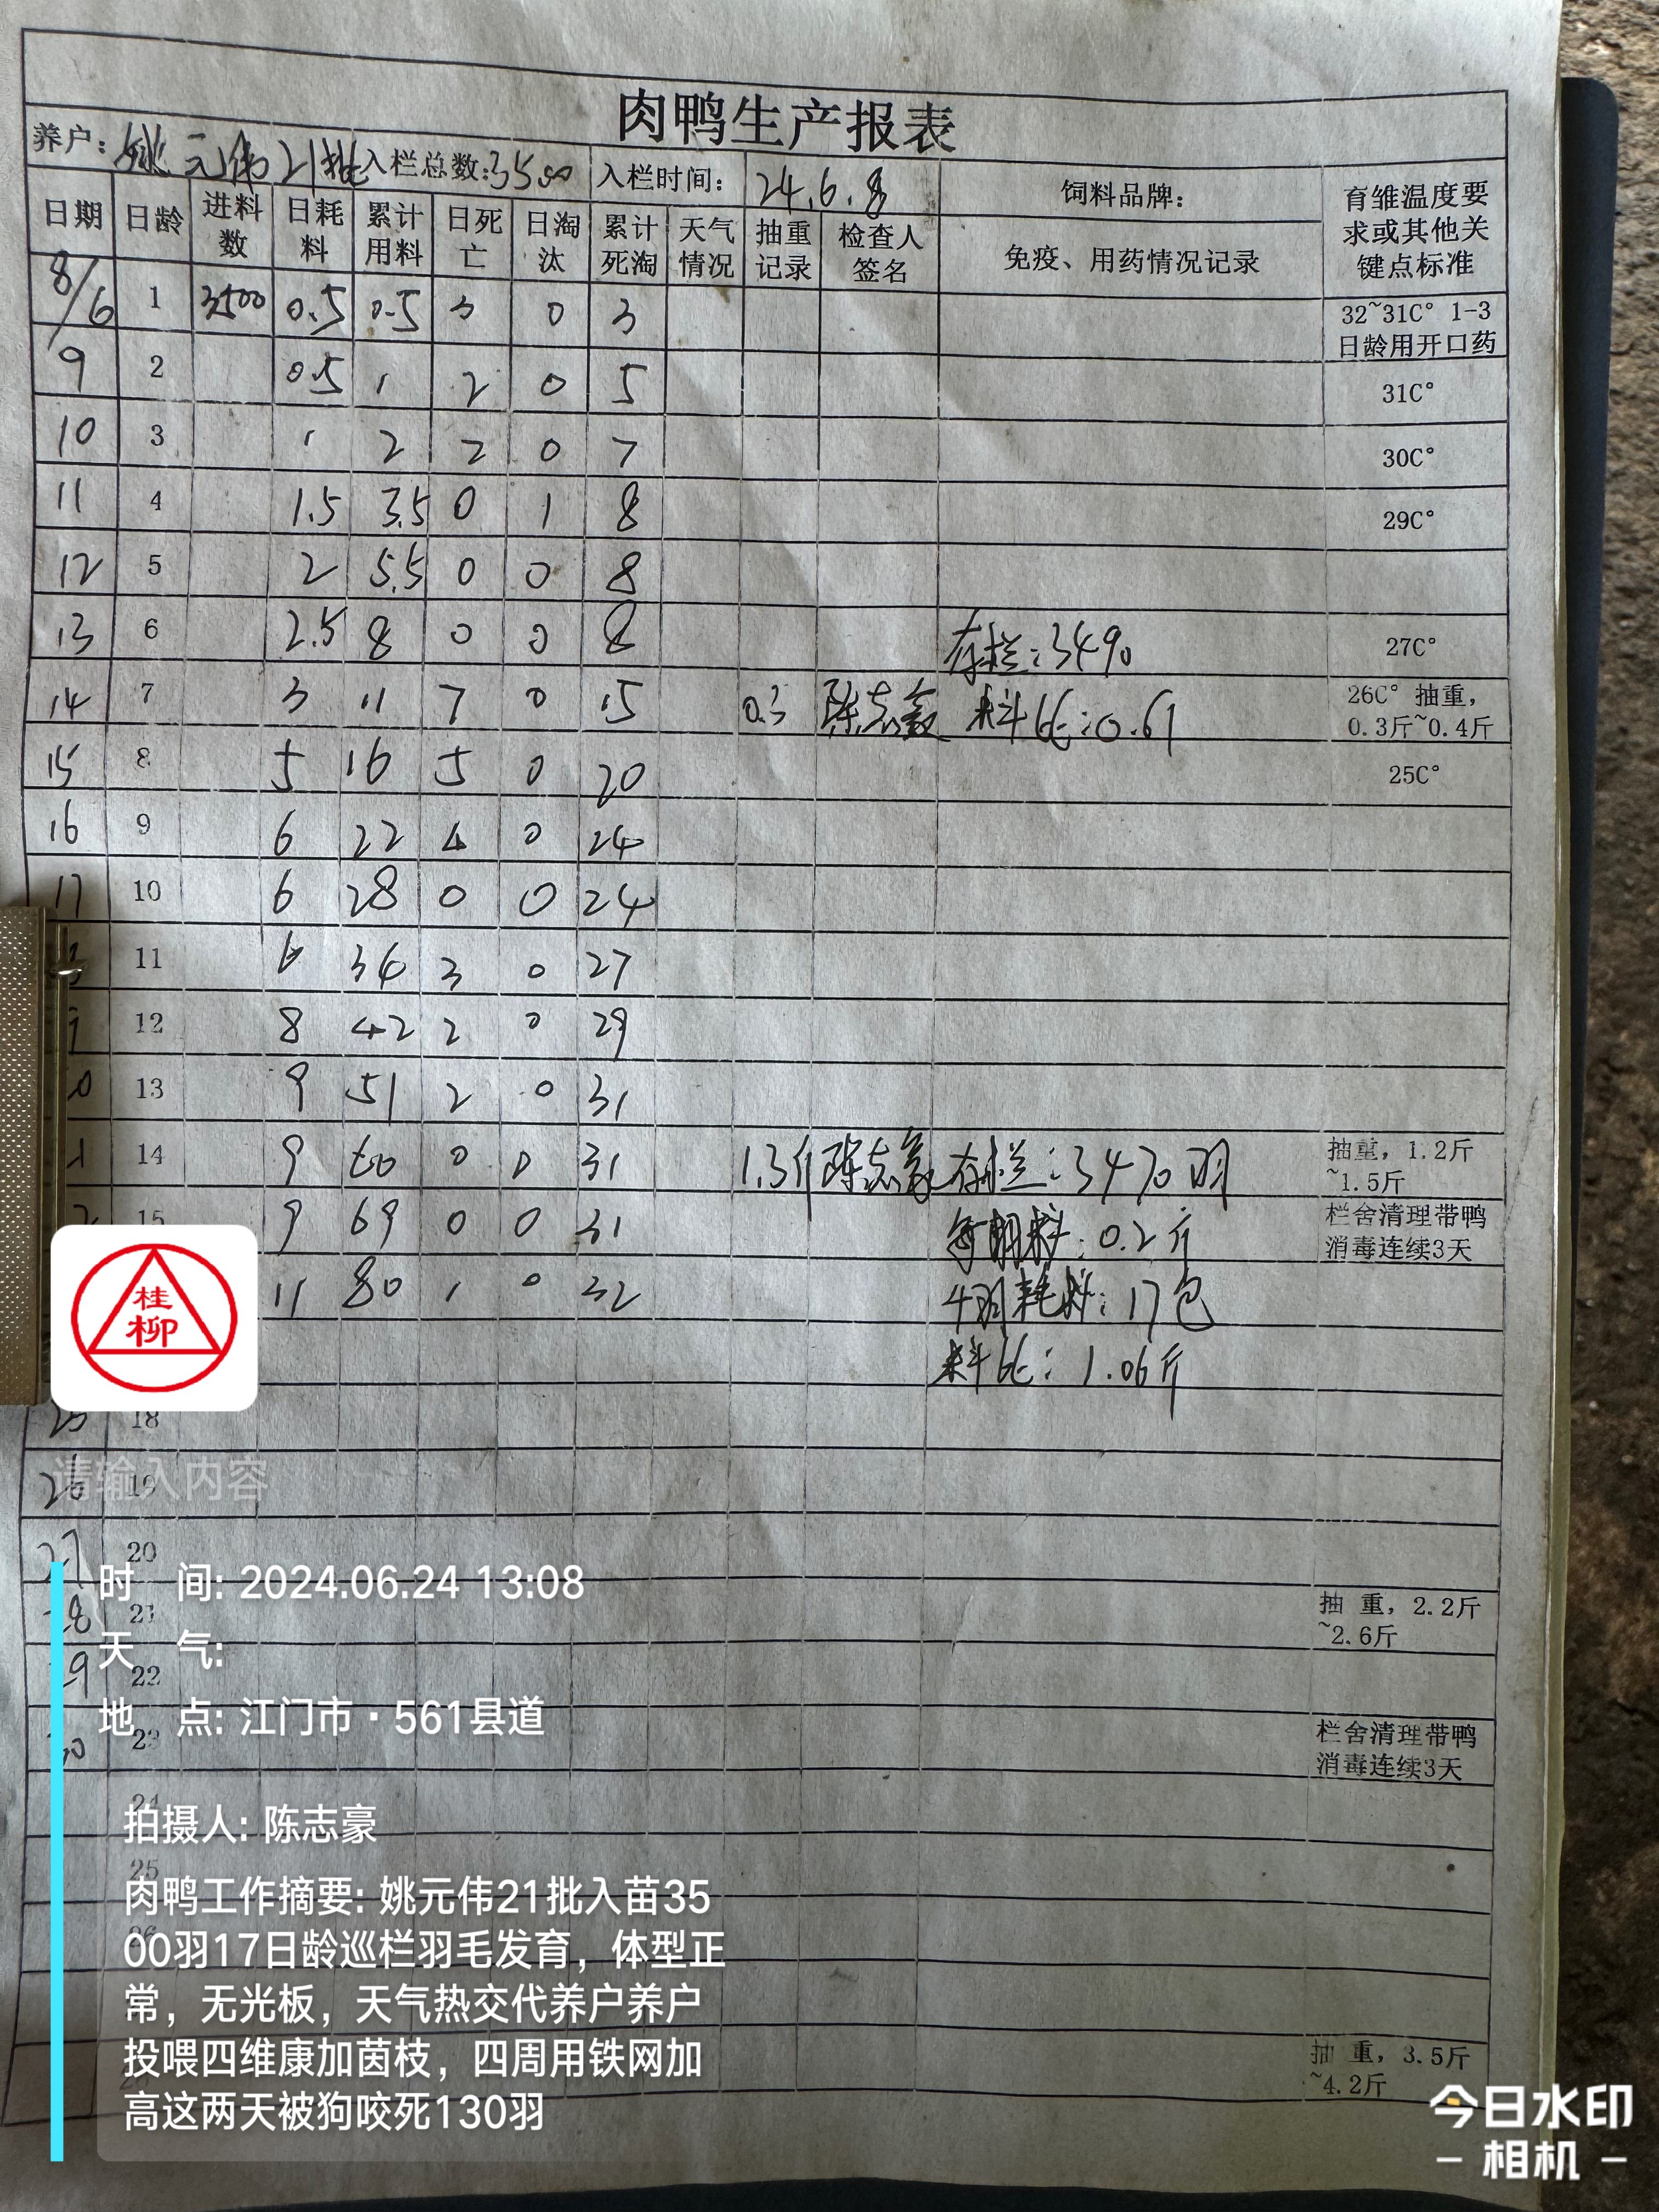 肉鸭生产报表
养户: 姚元伟21批 入栏总数:3500 入栏时间: 24.6.8 饲料品牌: 育雏温度要求或其他关键点标准
日期 日龄 进料数 日耗料 累计用料 日死亡 日淘汰 累计死淘 天气情况 抽重记录 检查人签名 免疫、用药情况记录
8/6 1 3500 0.5 0.5 3 0 3 32~31C° 1-3日龄用开口药
9 2 0.5 1 2 0 5 31C°
10 3 1 2 2 0 7 30C°
11 4 1.5 3.5 0 1 8 29C°
12 5 2 5.5 0 0 8
13 6 2.5 8 0 0 8 存栏:3490 27C°
14 7 3 11 7 0 15 0.3 陈志豪 料比:0.61 26C° 抽重，0.3斤~0.4斤
15 8 5 16 5 0 20 25C°
16 9 6 22 4 0 24
17 10 6 28 0 0 24
11 6 34 3 0 27
12 8 42 2 0 29
13 9 51 2 0 31
14 9 60 0 0 31 1.3斤 陈志豪 存栏:3470羽 抽重，1.2斤~1.5斤
15 9 69 0 0 31 料:0.2斤 栏舍清理带鸭消毒连续3天
11 80 1 0 32 耗料:17包
料比:1.06斤
桂
柳
25 18
26 19
请输入内容
27 20
时 间: 2024.06.24 13:08
28 21 抽 重，2.2斤~2.6斤
天 气:
29 22
地 点: 江门市·561县道
30 23 栏舍清理带鸭消毒连续3天
24
拍摄人: 陈志豪
25
肉鸭工作摘要: 姚元伟21批入苗35
26
00羽17日龄巡栏羽毛发育，体型正
常，无光板，天气热交代养户养户
投喂四维康加茵枝，四周用铁网加
高这两天被狗咬死130羽
抽 重，3.5斤~4.2斤
今日水印
相机